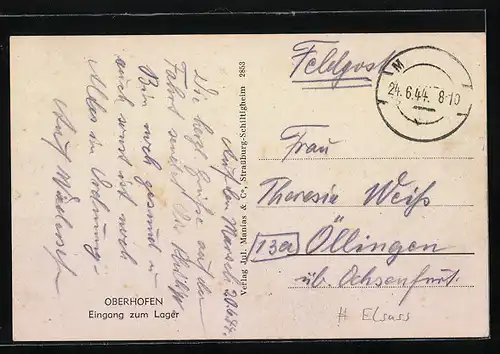 Auf dem Marsch 20.6.44.
Die herzl. Grüße auf der
Fahrt sendet Dir
Bin noch gesund u
auch sonst ist noch
Alles in Ordnung.
Auf Wiedersehn
OBERHOFEN
Eingang zum Lager
Verlag Jul. Manias & Co., Straßburg-Schiltigheim 2853
Feldpost
M
24.6.44. 8-10
Frau
Theresia Weiß
13a Öllingen
üb. Ochsenfurt.
# Elsass